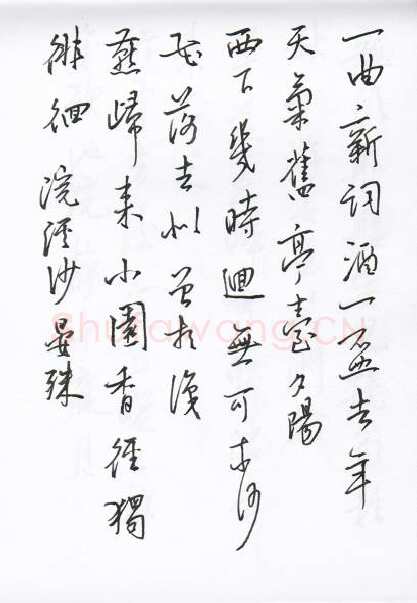 一曲新詞酒一盃去年
天氣舊亭臺夕陽
西下幾時迴無可奈何
花落去似曾相識
燕歸來小園香徑獨
徘徊 浣溪沙 晏殊
Shufawang.CN